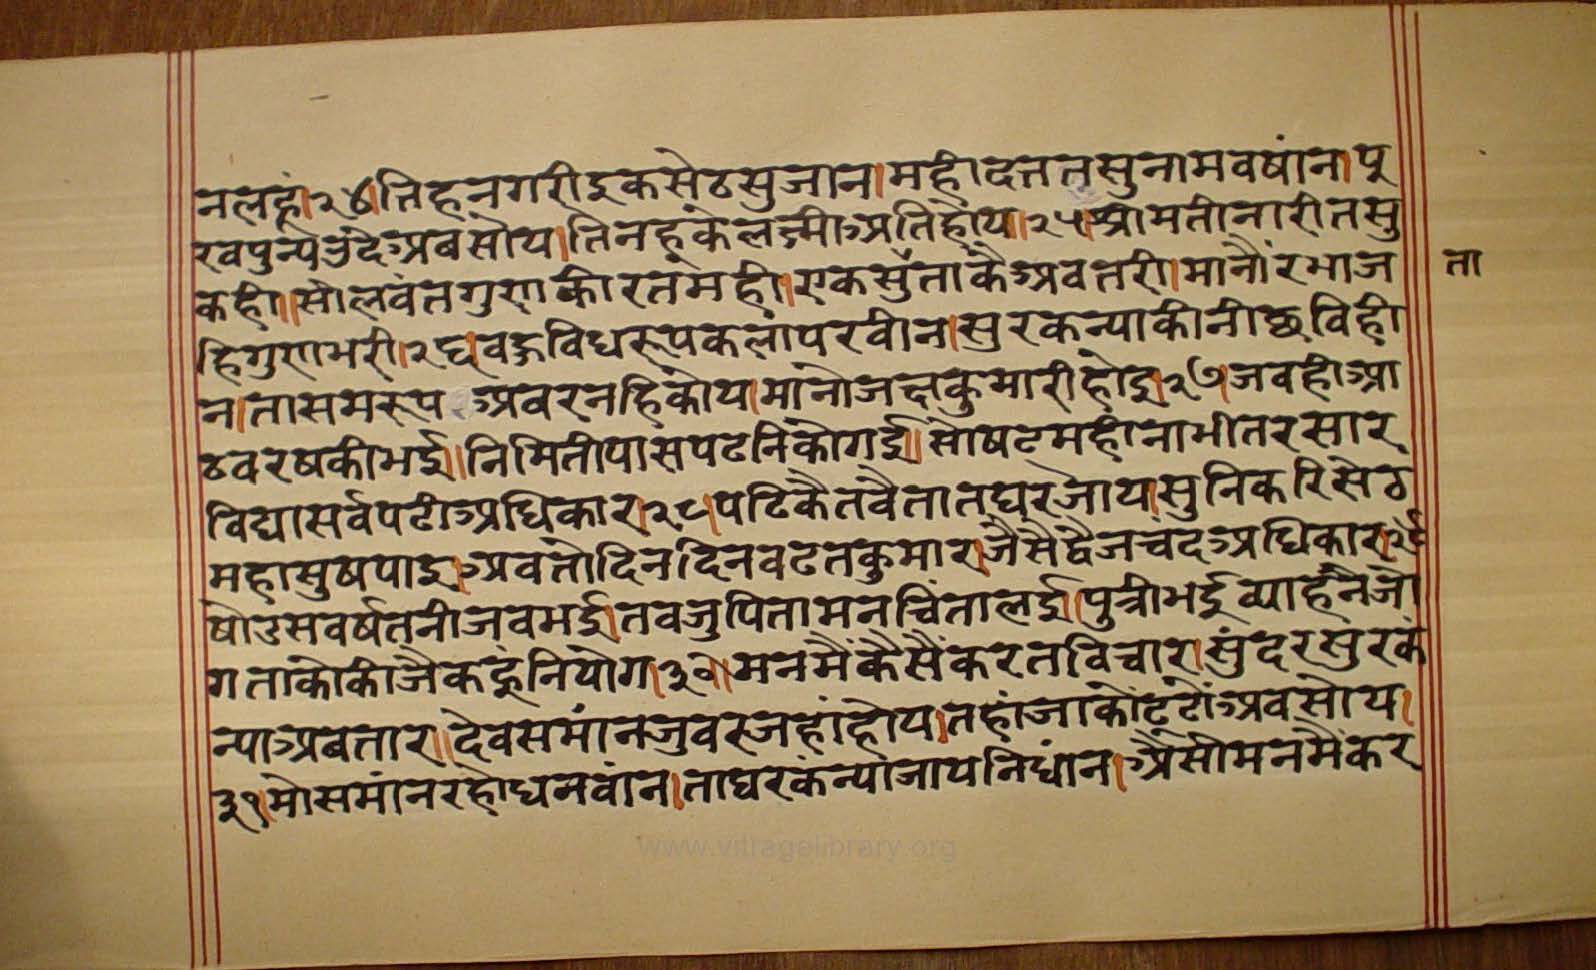 नलहां।२४।तिहनगरीइकसेठसुजान।महीदत्ततसुनामवषांन।पू
रवपुन्यउदैअबसोय।तिनहकैलक्ष्मीअतिहोय।२५।श्रीमतीनारीतसु
कही॥सीलवंतगुणकीरतमही।एकसुताकैअवतरी।मानौंरभाज
ता
हिगुणभरी।२६।वहुविधरूपकलापरवीन।सुरकन्याकीनीछविही
न।तासमरूपअवरनहिकोय।मानोजक्षकुमारीहोइ।२७।जवहीआ
ठवरषकीभई॥निमितीपासपढनिकोगई॥सोषटमहीनाभीतरसार
विद्यासर्वपढीअधिकार।२८।पढिकैतवैतातघरजाय।सुनिकरिसेठ
महासुषपाइ।अवतोदिनदिनवढतकुमार।जैसैद्वैजचंदअधिकार।२९
षोडसवर्षतनीजवभई।तवजुपितामनचिंतालई।पुत्रीभईव्याहनैजो
गताकोकीजैकहूंनियोग।३०।मनमैंकैसैंकरतविचार।सुंदरसुरकं
न्याअबतार॥देवसमांनजुवरजहांहोय।तहांजाकोढूंढोंअवसोय।
३१।मोसमांनरहोधनवांन।ताघरकंन्याजायनिधांन।ऐसीमनमैंकर
www.vitragelibrary.org